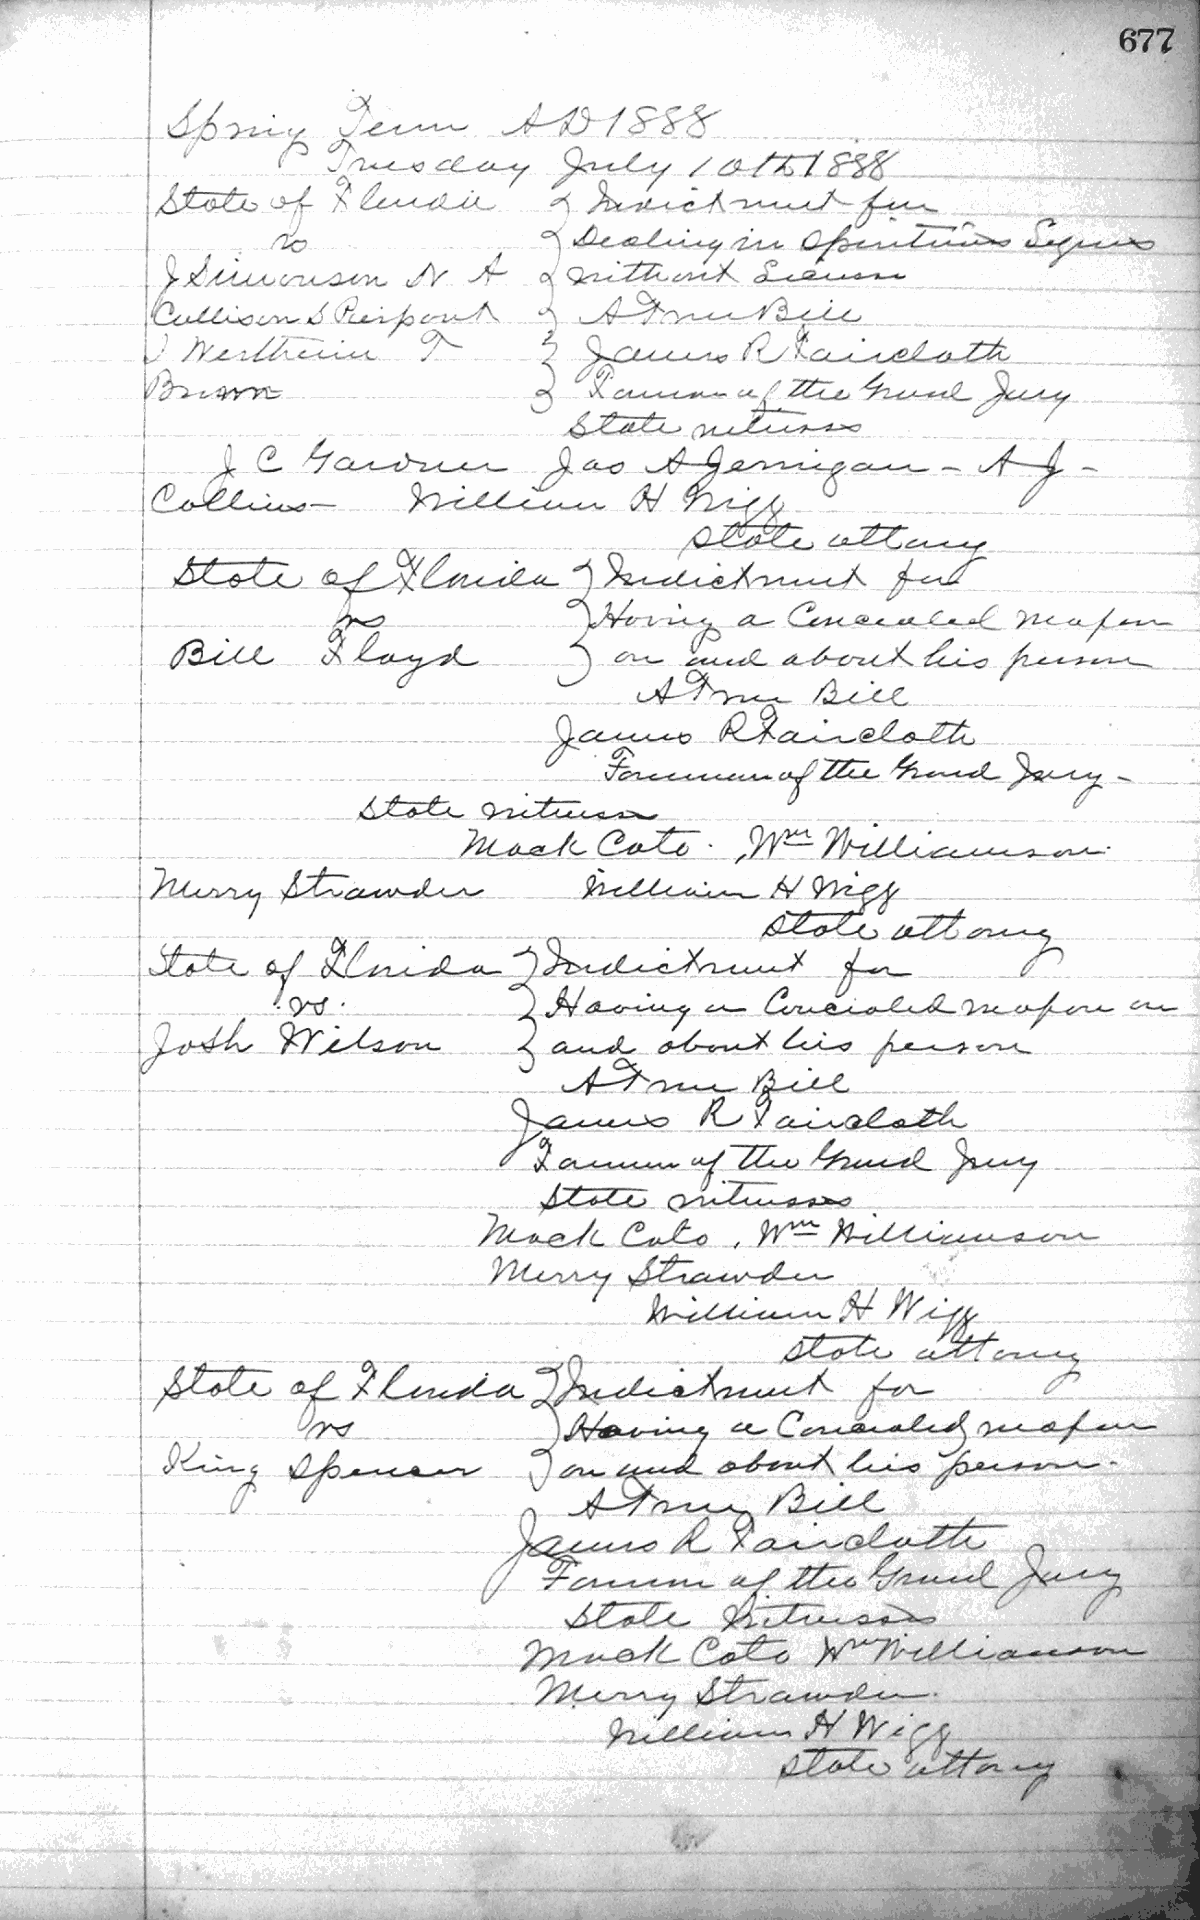 677
Spring Term AD 1888
Tuesday July 10th 1888
State of Florida } Indictment for
vs } Dealing in Spirituous Liquors
J Simonson N A } without License
Collison S Pierpont } A True Bill
J Wertheim T } James R Faircloth
Brown } Forman of the Grand Jury
State witness
J C Gardner Jas A Jernigan - A J -
Collins - William H Wigg
State attorny
State of Florida } Indictment for
vs } Having a Concealed weapon
Bill Floyd } on and about his person
A True Bill
James R Faircloth
Foreman of the Grand Jury -
State witness
Mack Cato . , Wm Williamson .
Merry Strawder William H Wigg
State attorny
State of Florida } Indictment for
vs. } Having a Concealed weapon on
Josh Wilson } and about his person
A True Bill
James R Faircloth
Forman of the Grand Jury
State witnesses
Mack Cato , Wm Williamson
Merry Strawder
William H Wigg
State attorny
State of Florida } Indictment for
vs } Having a Concealed weapon
King Spencer } on and about his person .
A True Bill
James R Faircloth
Forman of the Grand Jury
State Witnesses
Mack Cato Wm Williamson
Merry Strawder .
William H Wigg
State attorny